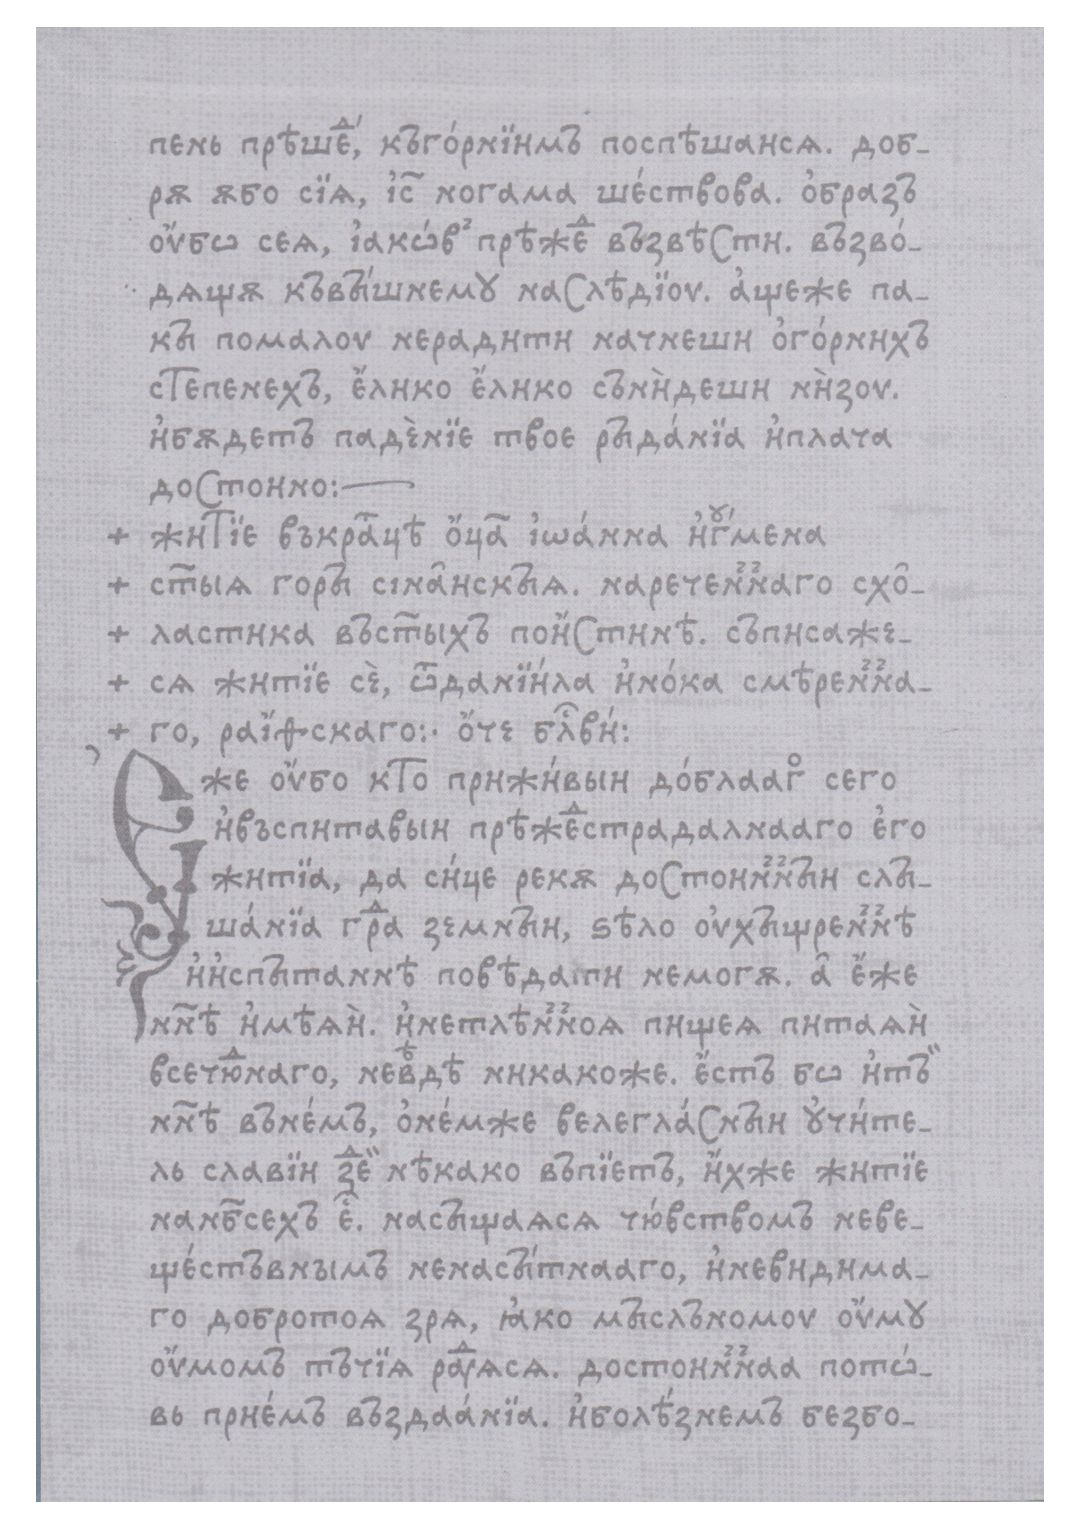 пень прѣшеⷣ, къго́рнїимъ поспѣшаисѧ. доб-
рѫ ѫбо сїѧ, і҆с҃ ногама ше́ствова. ѻ҆бразъ
ѹ҆бѡ сеѧ, і҆акѡ́в прѣжеⷣ възвѣсти. възво́-
дѧщѫ къвы́шнемꙋ наслѣдїоу. а҆щеже па-
кы помалоу нерадити начнеши о҆го́рнихъ
степенехъ, є҆лико є҆лико сънѝдеши нѝзоу.
и҆бѫдетъ падѐнїе твое рыда́нїа и҆плача
достоино:
+ житїе въкра́цѣ о҆ц҃а і҆ѡа́нна и҆гꙋ́мена
+ ст҃ыѧ горы сина̑искыѧ. нареченнаго схо̑-
+ ластика въст҃ыхъ пои҆стинѣ. съписаже-
+ сѧ житїе сѐ, ѿданїи́ла и҆но́ка смѣренна-
+ го, раї҆ѳскаго:· о҆че бл҃ви́:
Еже оу҆бо кто прижи́выи до́блааго сего
и҆въспитавыи прѣжеⷣстрадалнааго є҆го
житїа, да си́це рекѫ достоинныи слы-
ша́нїа граⷣ земныи, ѕѣло оу҆хыщреннѣ
и҆и҆спытаннѣ повѣдати немогѫ. а҆̑ є҆же
нн҃ѣ и҆мѣѧѝ. и҆нетлѣнноѧ пищеѧ питаѧѝ
всечюⷣнаго, невѣдѣ никакоже. є҆стъ бѡ и҆тъ
нн҃ѣ вънє́мъ, ѻ҆не́мже велегла́сныи ꙋ҆чи́те-
ль славїи зеⷣ нѣкако въпїетъ, и҆хже житїе
нанб҃сехъ є҆́. насыщаѧсѧ чю́вствомъ неве-
ще́ствънымъ ненасы́тнааго, и҆невидима-
го добротоѧ зрѧ, ꙗ҆ко мысльномоу оу҆мꙋ
оу҆момъ тъчїѧ раⷣуѧсѧ. достоиннаа потѡ́-
вь прие́мъ въздаа́нїа. и҆болѣ́знемъ безбо-